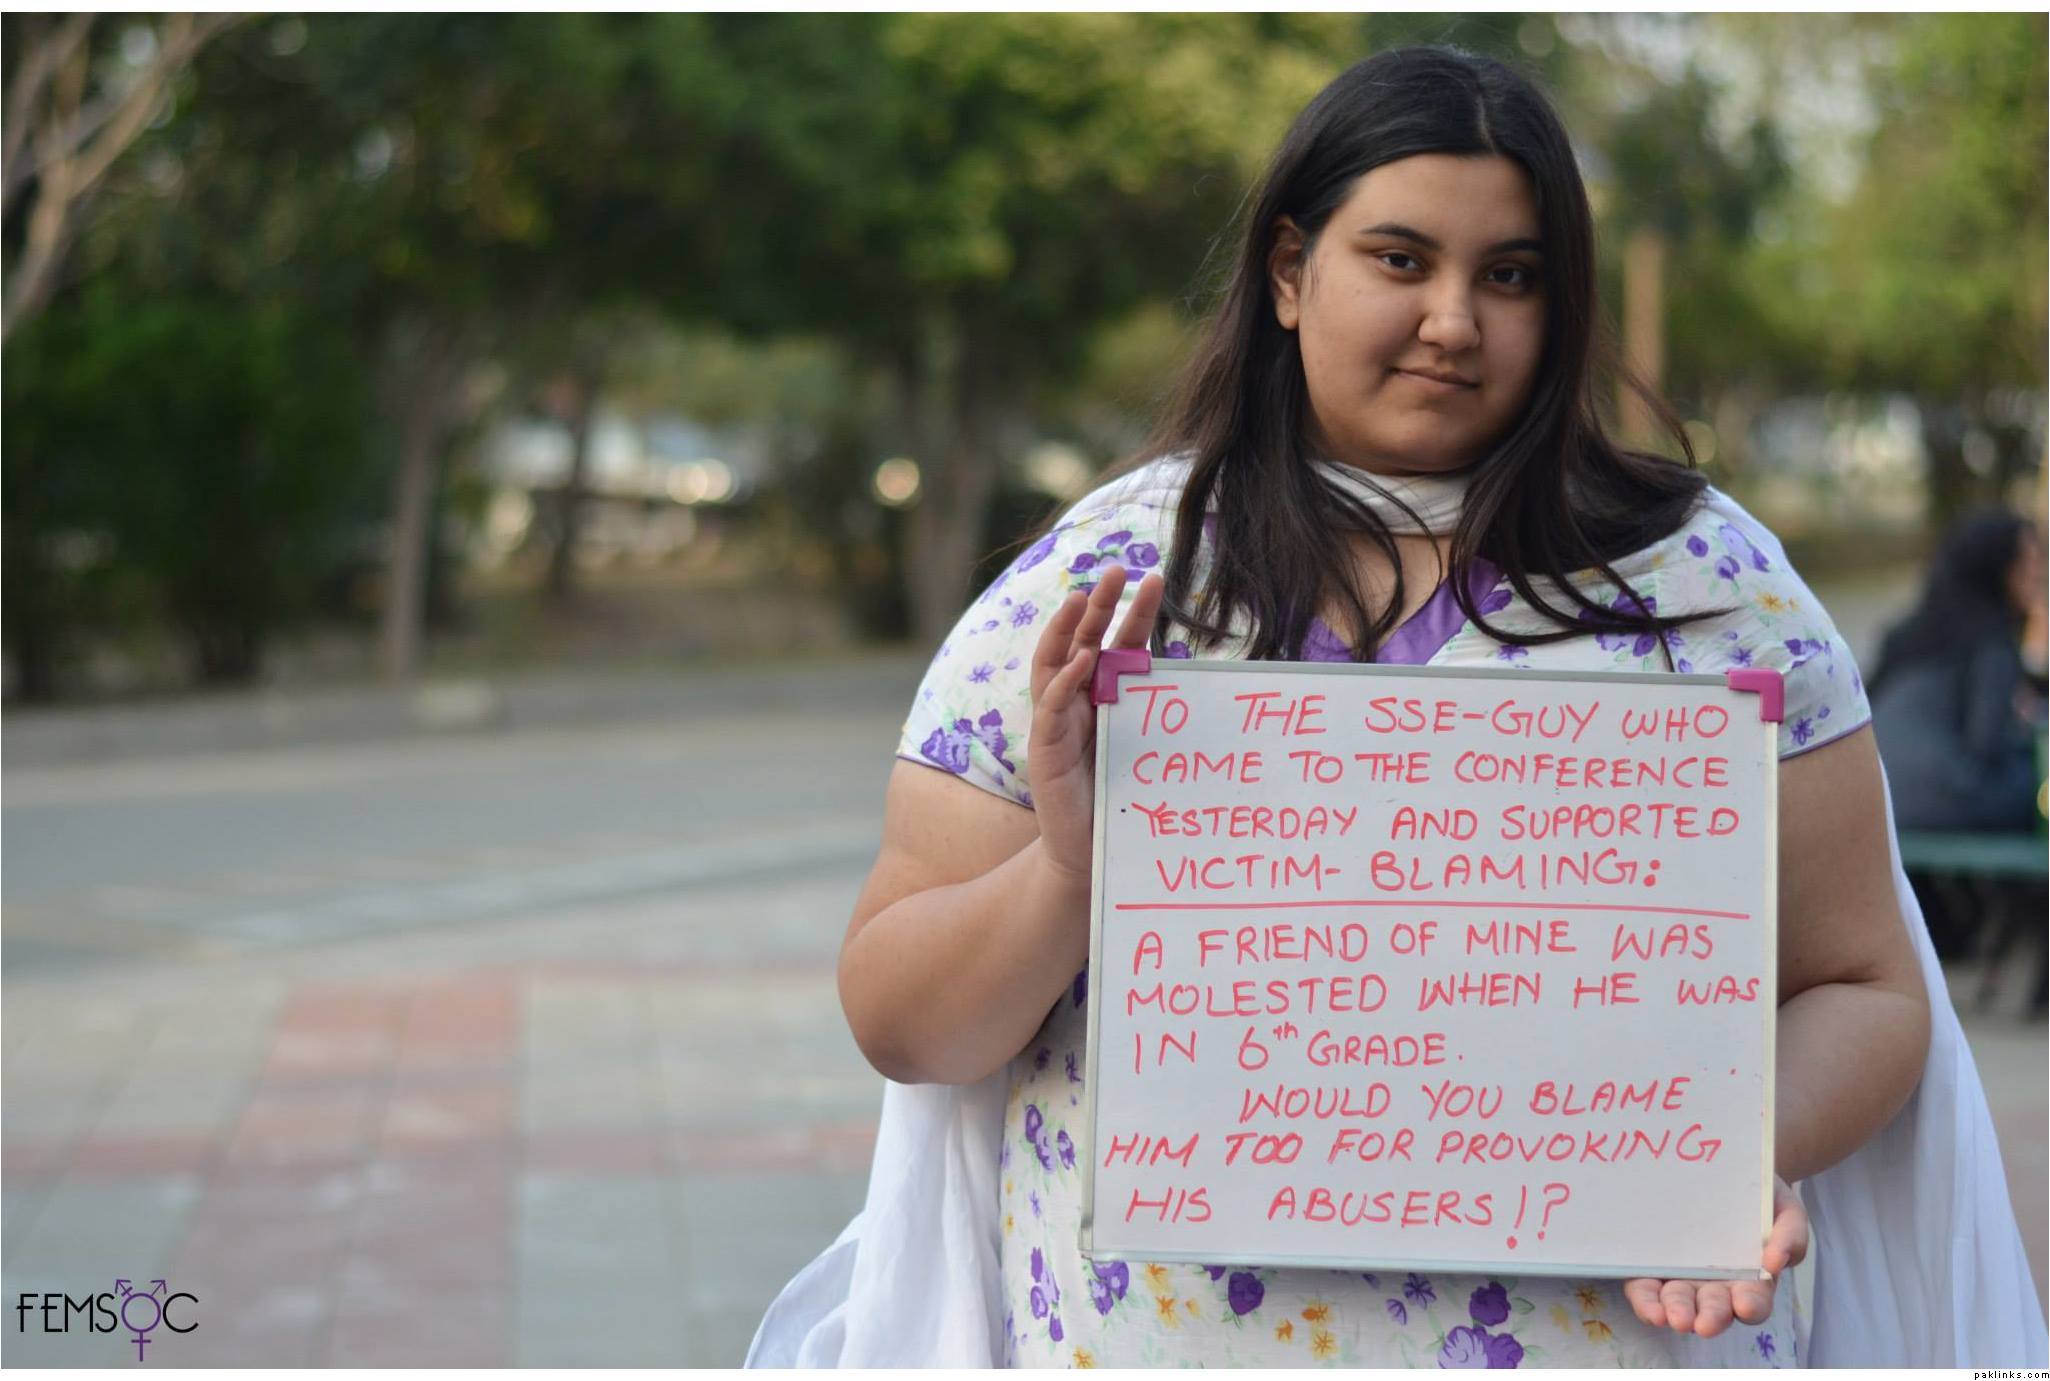 TO THE SSE-GUY WHO
CAME TO THE CONFERENCE
YESTERDAY AND SUPPORTED
VICTIM-BLAMING:
A FRIEND OF MINE WAS
MOLESTED WHEN HE WAS
IN 6th GRADE.
WOULD YOU BLAME
HIM TOO FOR PROVOKING
HIS ABUSERS!?
FEMSOC
paklinks.com